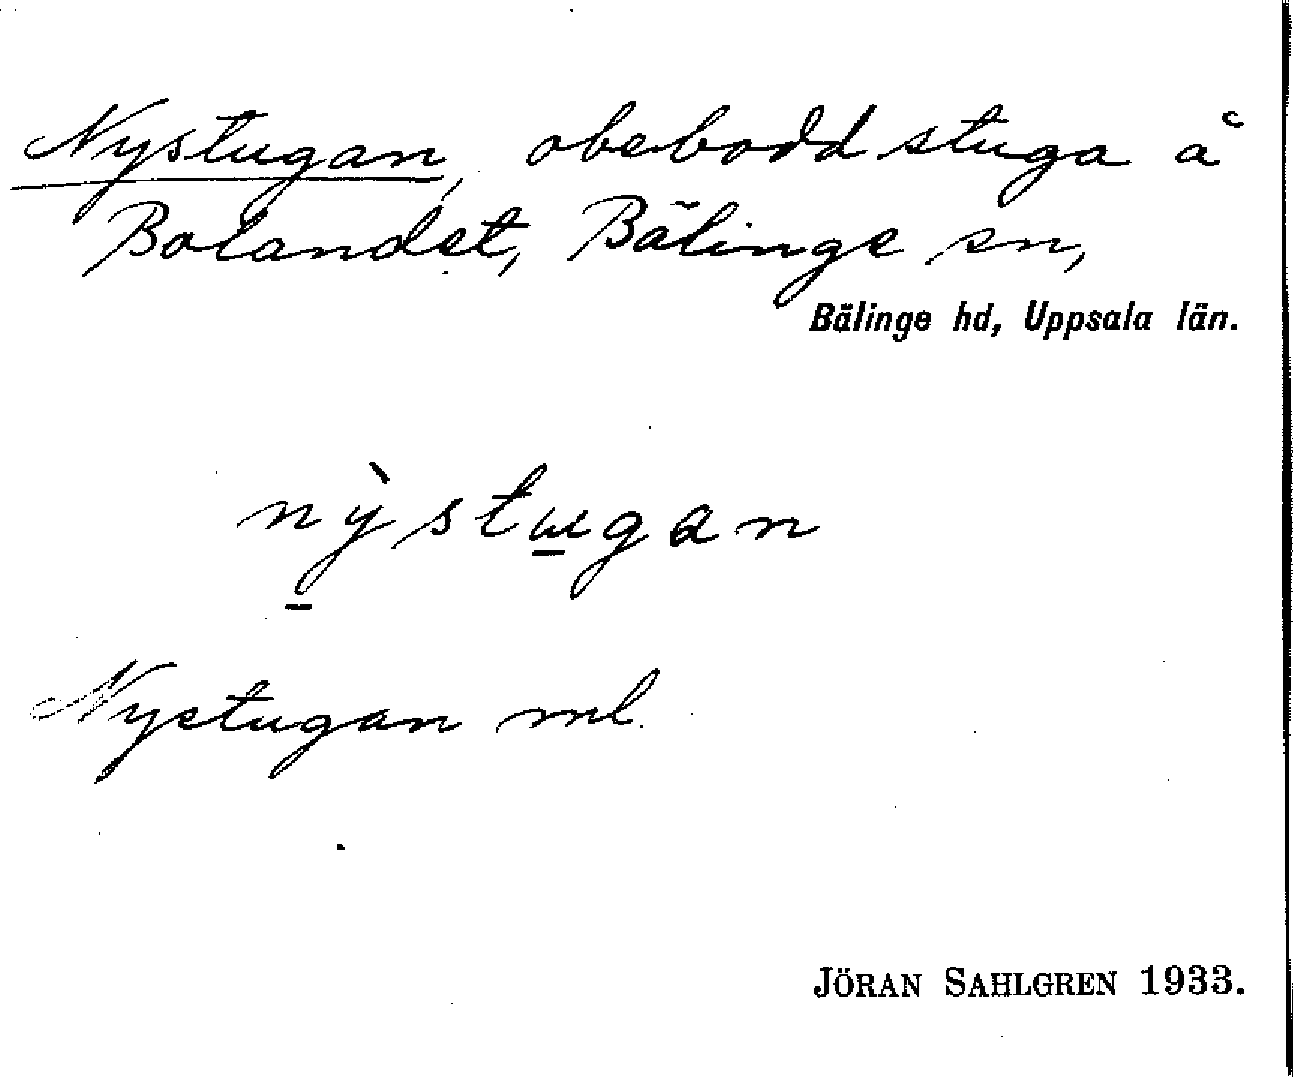 Nystugan, obebodd stuga å
Bolandet, Bälinge sn,
Bälinge hd, Uppsala län.
nỳ̱stɯ̱gan
Nystugan ml.
JÖRAN SAHLGREN 1933.